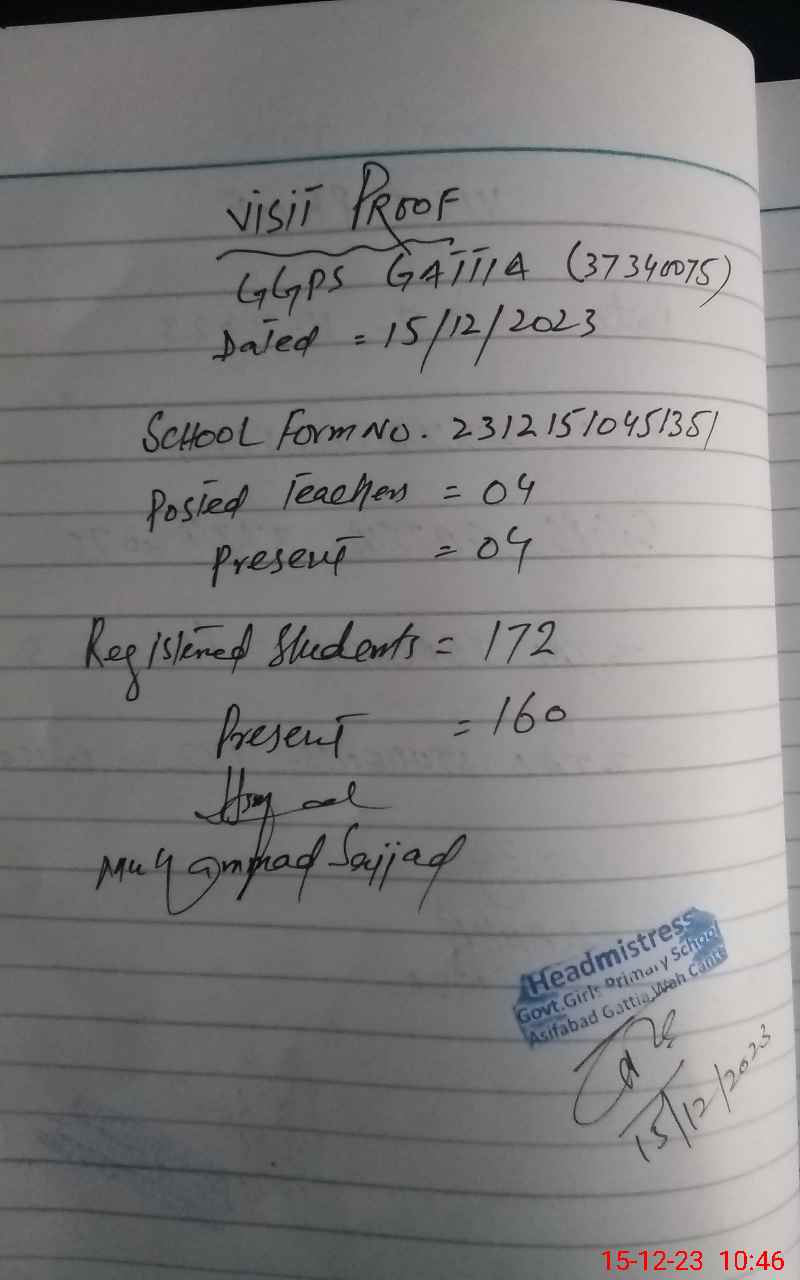 VISIT PROOF
GGPS GATTIA (37340075)
Dated = 15/12/2023
SCHOOL Form No. 23121510451351
Posted Teachers = 04
Present = 04
Registered Students = 172
Present = 160
Muhammad Sajjad
Headmistress
Govt.Girls Primary School
Asifabad Gattia Wah Cantt
15/12/2023
15-12-23 10:46